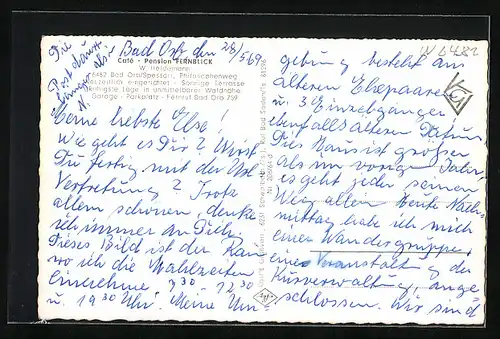 Die
Post dauert
länger als
N.
Bad Orb, den 28/5 69
Café - Pension FERNBLICK
W. Heidamann
6482 Bad Orb/Spessart, Philosophenweg
Neuzeitlich eingerichtet - Sonnige Terrasse
Ruhigste Lage in unmittelbarer Waldnähe
Garage - Parkplatz - Fernruf Bad Orb 759
Meine liebste Else!
Wie geht es Dir? Wirst
Du fertig mit der
Vertretung? Trotz
allem schönen, denke
ich immer an Dich.
Dieses Bild ist der Raum
wo ich die Mahlzeiten
einnehme 9 30 - 12 30
u. 19 30 Uhr. Meine Um
W 6482
gebung besteht aus
älteren Ehepaare
u. 3 Einzelgänger
ebenfalls älteren Datum
Dies Haus ist größer
als im vorigen Jahr,
es geht jeder seinen
Weg allein. Heute Nach-
mittag habe ich mich
einer Wandergruppe,
eine Veranstaltung der
Kurverwaltung, ange-
schlossen. Wir sind